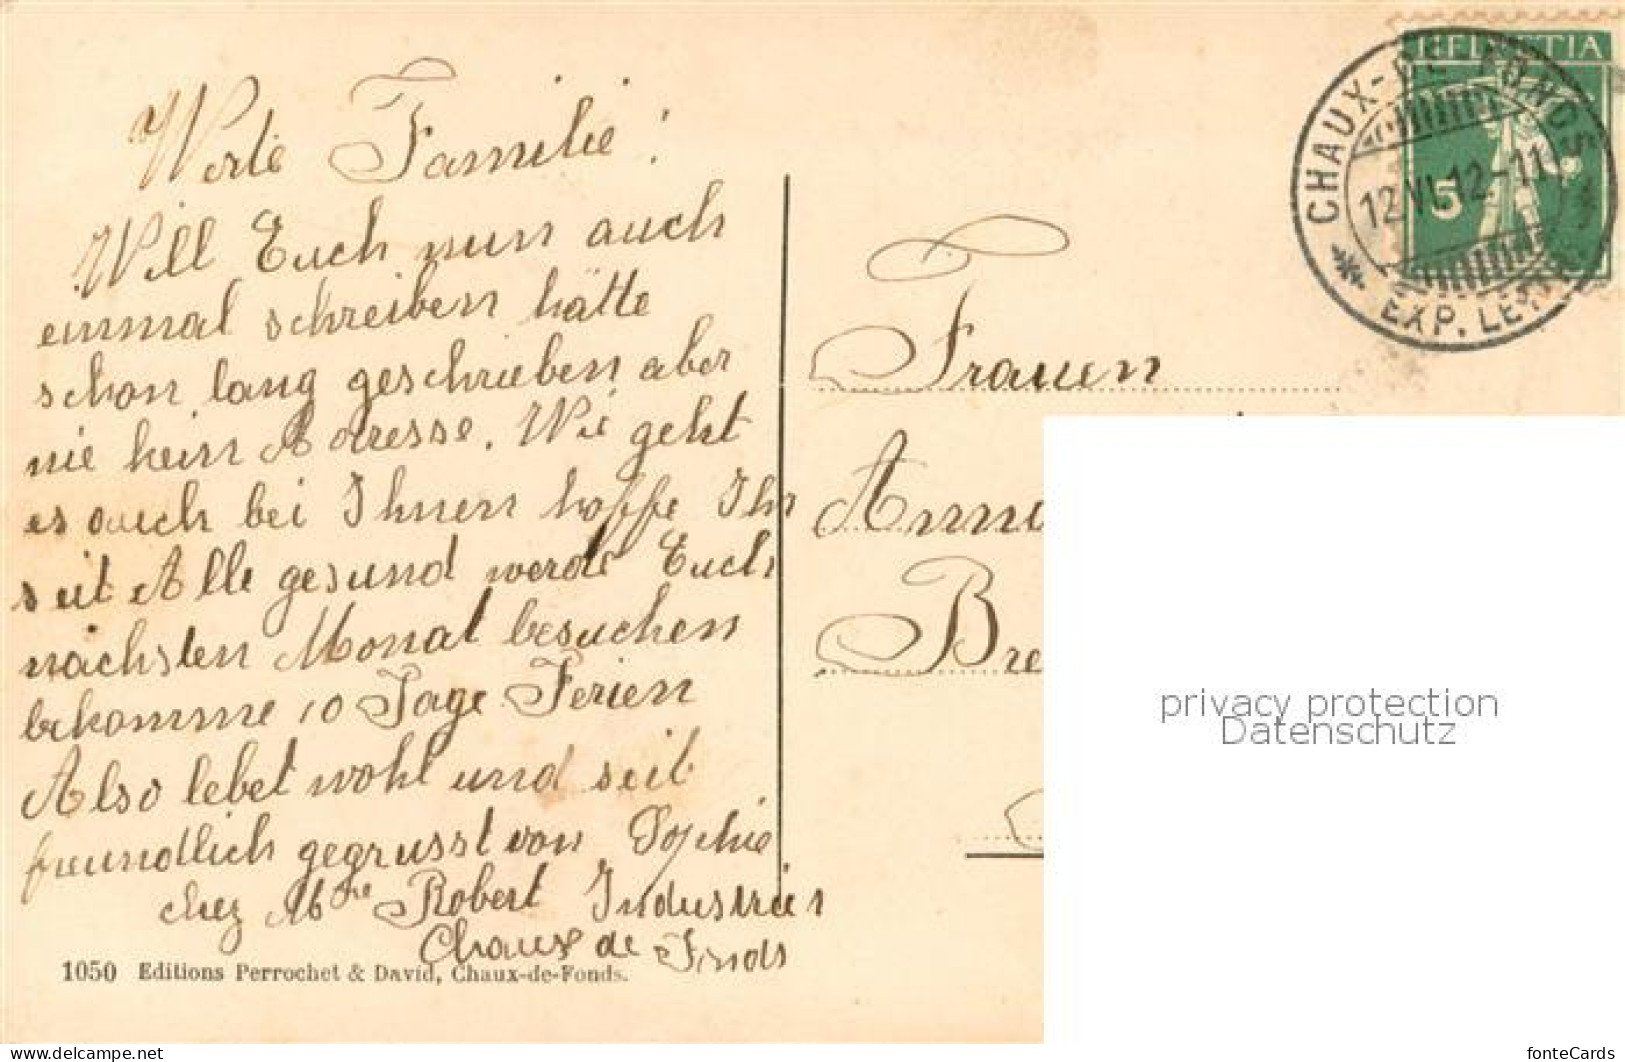 Werte Familie!
Will Euch nun auch
einmal schreiben hätte
schon lang geschrieben aber
nie kein Adresse. Wie geht
es auch bei Ihnen hoffe Ihr
seit Alle gesund werde Euch
nächsten Monat besuchen
bekomme 10 Tage Ferien
Also lebet wohl und seit
freundlich gegrusst von Sophie
chez Mme Robert Industries
Chaux de Fonds
1050 Editions Perrochet & David, Chaux-de-Fonds.
HELVETIA
5
CHAUX-DE-FONDS
12.VI.12-11
EXP. LETTR.
Frauen
Anna
Bre
privacy protection
Datenschutz
www.delcampe.net
fonteCards